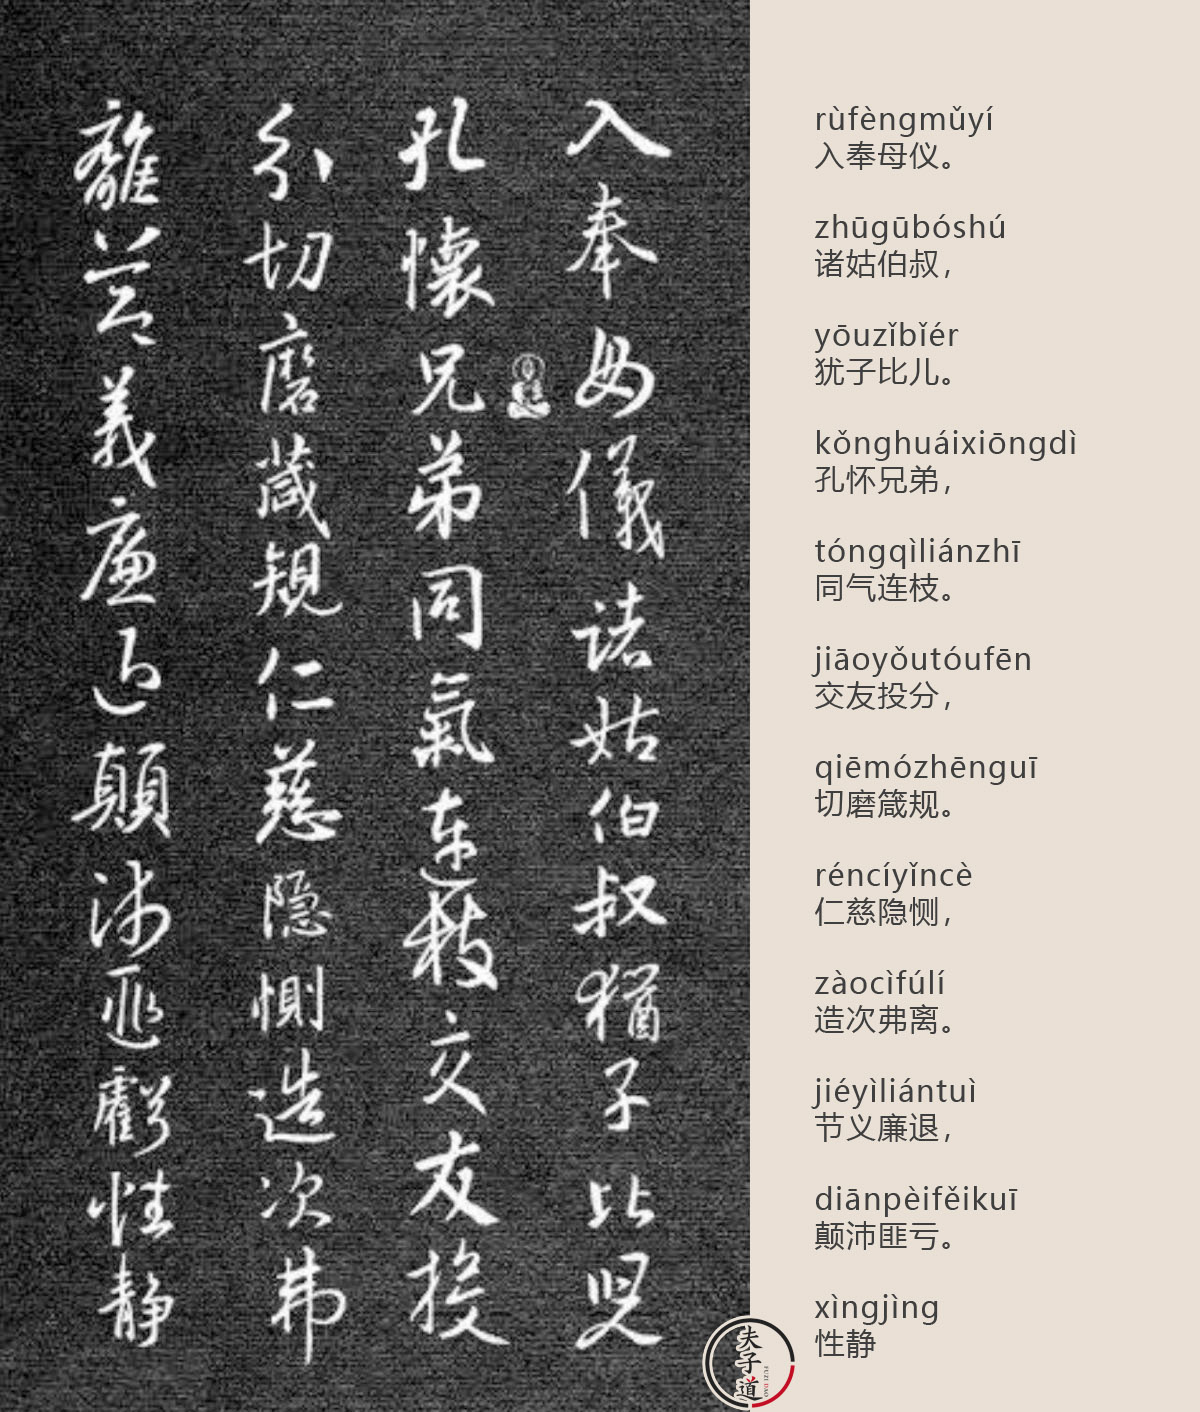 入奉母儀諸姑伯叔猶子比兒
孔懷兄弟同氣連枝交友投
分切磨箴規仁慈隱惻造次弗
離節義廉退顛沛匪虧性靜
rùfèngmǔyí
入奉母仪。
zhūgūbóshú
诸姑伯叔，
yōuzǐbǐér
犹子比儿。
kǒnghuáixiōngdì
孔怀兄弟，
tóngqìliánzhī
同气连枝。
jiāoyǒutóufēn
交友投分，
qiēmózhēnguī
切磨箴规。
réncíyǐncè
仁慈隐恻，
zàocìfúlí
造次弗离。
jiéyìliántuì
节义廉退，
diānpèifěikuī
颠沛匪亏。
xìngjìng
性静
夫子道
FUZI DAO